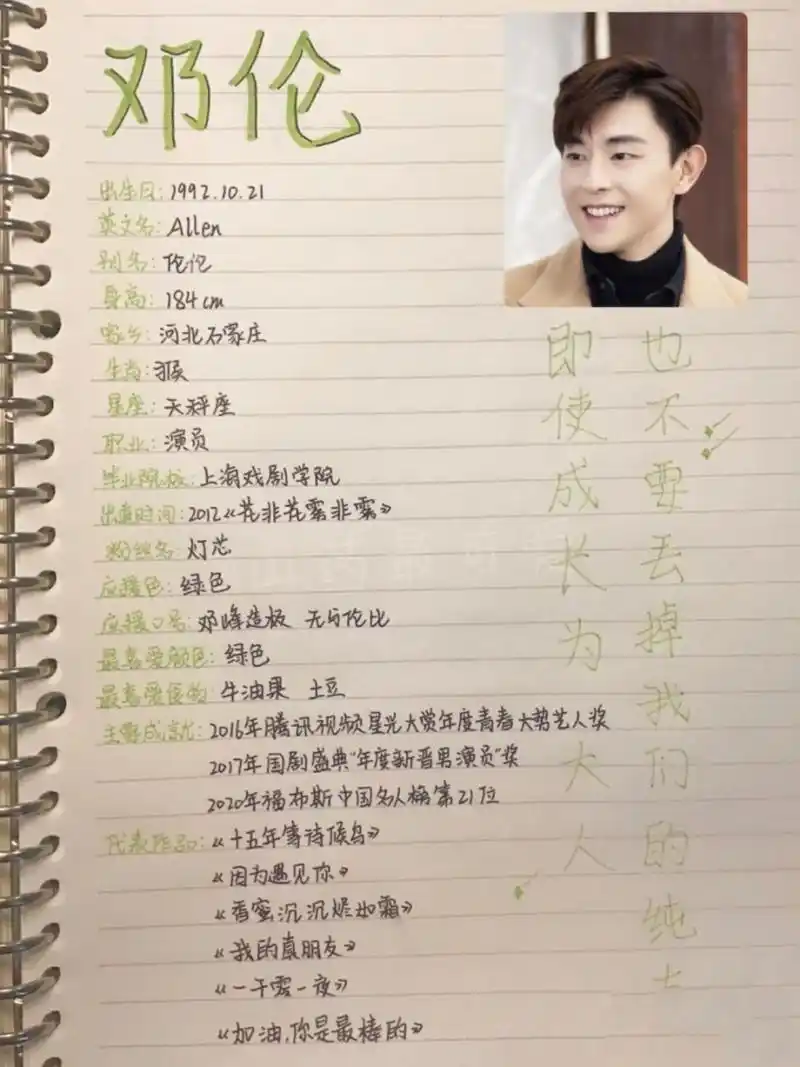 邓伦
出生日: 1992.10.21
英文名: Allen
别名: 伦伦
身高: 184cm
家乡: 河北石家庄
生肖: 猴
星座: 天秤座
职业: 演员
毕业院校: 上海戏剧学院
出道时间: 2012《花非花雾非雾》
粉丝名: 灯芯
应援色: 绿色
应援口号: 邓峰造极 无与伦比
最喜爱颜色: 绿色
最喜爱食物: 牛油果 土豆
主要成就: 2016年腾讯视频星光大赏年度青春大势艺人奖
2017年国剧盛典“年度新晋男演员”奖
2020年福布斯中国名人榜第21位
代表作品: 《十五年等待候鸟》
《因为遇见你》
《香蜜沉沉烬如霜》
《我的真朋友》
《一千零一夜》
《加油,你是最棒的》
即使成长为大人
也不要丢掉我们的纯